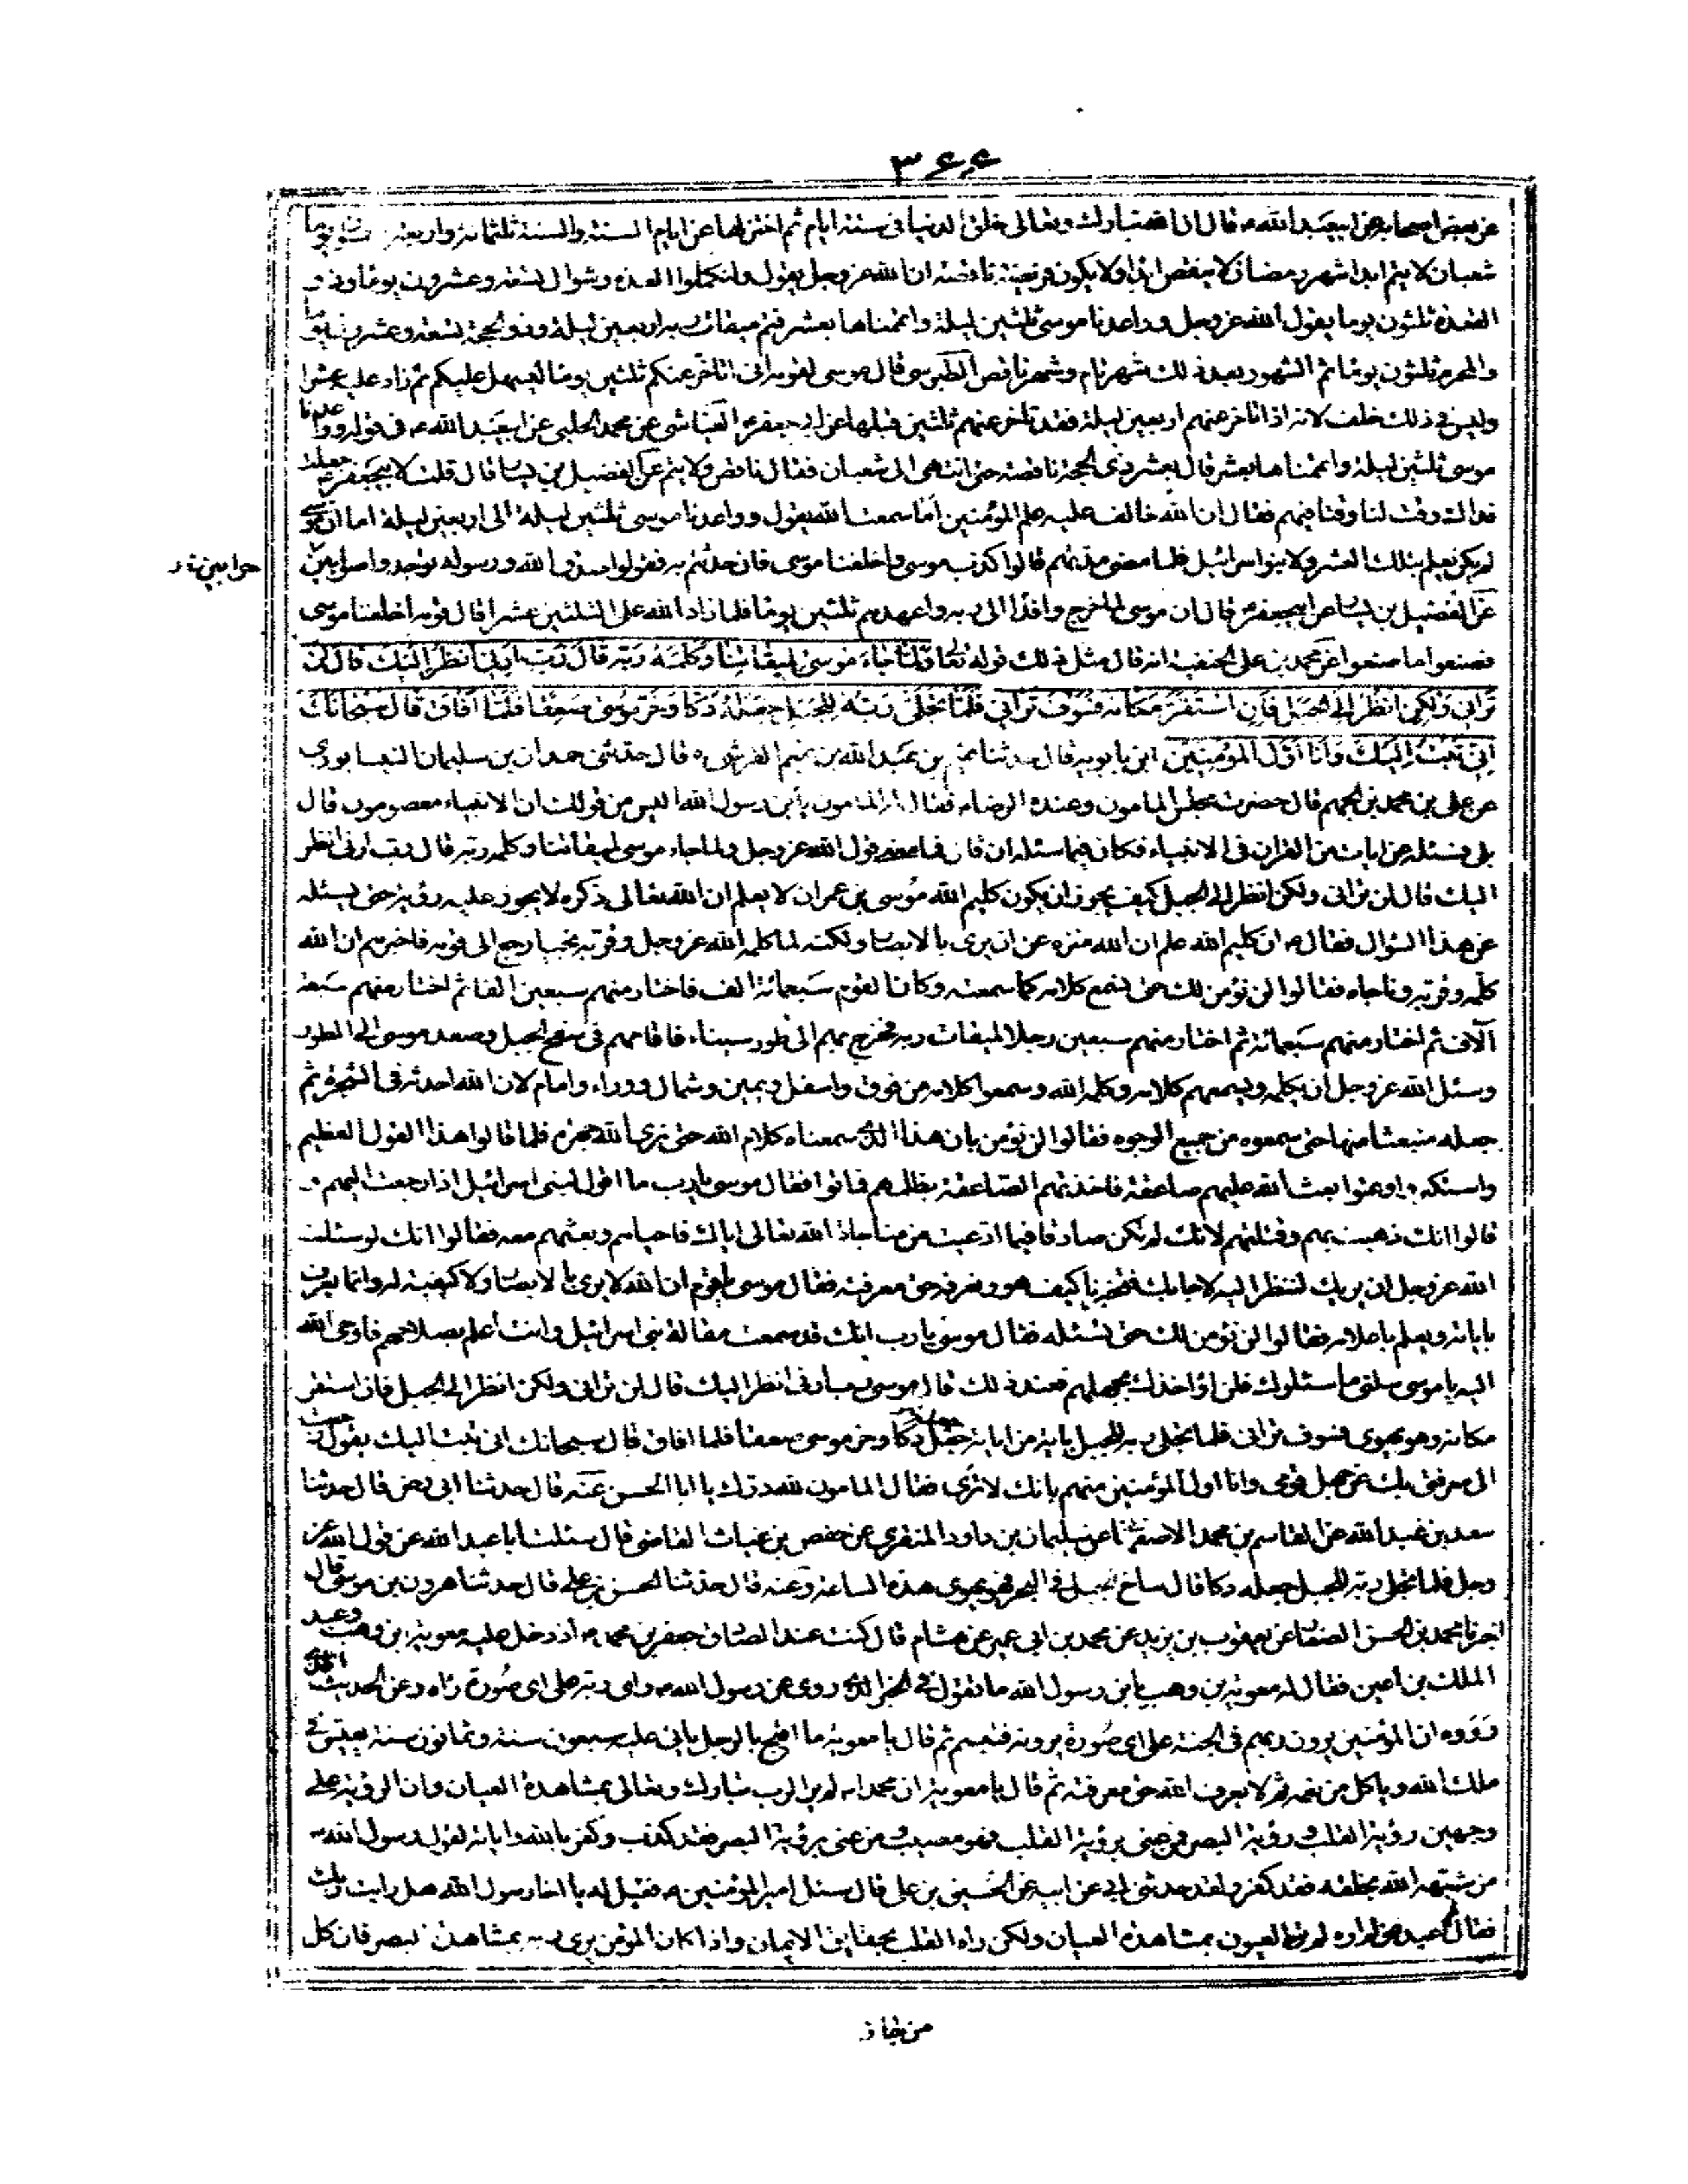 ٣٦٦
عن بعض اصحابه عن ابيعبد الله ع قال ان الله تبارك وتعالى خلق الدنيا في ستة ايام ثم اختزلها عن ايام السنة والسنة ثلثمائة واربعة وخمسون يوما
شعبان لا يتم ابدا شهر رمضان لا ينقص ابدا ولا يكون فريضة ناقصة ان الله عز وجل يقول ولتكملوا العدة وشوال تسعة وعشرون يوما وذو
القعدة ثلثون يوما يقول الله عز وجل وواعدنا موسى ثلثين ليلة واتممناها بعشر فتم ميقات ربه اربعين ليلة وذو الحجة تسعة وعشرون يوما
والمحرم ثلثون يوما ثم الشهور بعد ذلك شهر تام وشهر ناقص الطبرسي قال موسى لقومه اني اتاخر عنكم ثلثين يوما ليسهل عليكم ثم زاد عليه عشرا
وليس في ذلك خلف لانه اذا تاخر عنهم اربعين ليلة فقد تاخر عنهم ثلثين قبلها عن ابي جعفر ع العياشي عن محمد الحلبي عن ابيعبد الله ع في قوله وواعدنا
موسى ثلثين ليلة واتممناها بعشر قال بعشر ذي الحجة ناقصة حتى انتهى الى شعبان فقال ناقص ولا يتم عن الفضيل بن يسار قال قلت لابيجعفر ع جعلت
فداك وقت لنا وقتا فيهم فقال ان الله خالف علمه علم الموقتين اما سمعت الله يقول وواعدنا موسى ثلثين ليلة الى اربعين ليلة اما ان موسى
لم يكن يعلم بتلك العشر ولا بنو اسرائيل فلما مضى حدثهم قالوا كذب موسى واخلفنا موسى فان حدثتم به فقولوا صدق الله ورسوله توجروا مرتين
عن الفضيل بن يسار عن ابيجعفر ع قال ان موسى لما خرج وافدا الى ربه واعدهم ثلثين يوما فلما زاد الله على الثلثين عشرا قال قومه اخلفنا موسى
فصنعوا ما صنعوا عن محمد بن على الحنفية انه قال مثل ذلك قوله تعالى ولما جاء موسى لميقاتنا وكلمه ربه قال رب ارني انظر اليك قال لن
تراني ولكن انظر الى الجبل فان استقر مكانه فسوف تراني فلما تجلى ربه للجبل جعله دكا وخر موسى صعقا فلما افاق قال سبحانك
اني تبت اليك وانا اول المؤمنين ابن بابويه قال حدثنا تميم بن عبد الله بن تميم القرشي قال حدثنى حمدان بن سليمان النيسابوري
عن على بن محمد بن الجهم قال حضرت مجلس المامون وعنده الرضا ع فقال له المامون يا بن رسول الله اليس من قولك ان الانبياء معصومون قال
بلى فسئله عن ايات من القران في الانبياء فكان فيما سئله ان قال فما معنى قول الله عز وجل ولما جاء موسى لميقاتنا وكلمه ربه قال رب ارني انظر
اليك قال لن تراني ولكن انظر الى الجبل كيف يجوز ان يكون كليم الله موسى بن عمران لا يعلم ان الله تعالى ذكره لا يجوز عليه رؤية حتى يسئله
عن هذا السؤال فقال ع ان كليم الله علم ان الله منزه عن ان يرى بالابصار ولكنه لما كلمه الله عز وجل وقربه نجيا رجع الى قومه فاخبرهم ان الله
كلمه وقربه وناجاه فقالوا لن نؤمن لك حتى نسمع كلامه كما سمعته وكان القوم سبعمائة الف فاختار منهم سبعين الفا ثم اختار منهم سبعة
آلاف ثم اختار منهم سبعمائة ثم اختار منهم سبعين رجلا لميقات ربه فخرج بهم الى طور سيناء فاقامهم في سفح الجبل وصعد موسى الى الطور
وسئل الله عز وجل ان يكلمه ويسمعهم كلامه وكلمه الله وسمعوا كلامه من فوق واسفل ويمين وشمال ووراء وامام لان الله احدثه في الشجرة ثم
جعله منبعثا منها حتى سمعوه من جميع الوجوه فقالوا لن نؤمن بان هذا الذي سمعناه كلام الله حتى نرى الله جهرة فلما قالوا هذا القول العظيم
واستكبروا وعتوا بعث الله عليهم صاعقة فاخذتهم الصاعقة بظلمهم فماتوا فقال موسى يا رب ما اقول لبنى اسرائيل اذا رجعت اليهم و
قالوا انك ذهبت بهم وقتلتهم لانك لم تكن صادقا فيما ادعيت من مناجاة الله تعالى اياك فاحياهم وبعثهم معه فقالوا انك لو سئلت
الله عز وجل ان يريك تنظر اليه لاجابك فتخبرنا كيف هو ونعرفه حق معرفته فقال موسى يا قوم ان الله لا يرى بالابصار ولا كيفية له وانما يعرف
باياته ويعلم باعلامه فقالوا لن نؤمن لك حتى تسئله فقال موسى يا رب انك قد سمعت مقالة بني اسرائيل وانت اعلم بصلاحهم فاوحى الله
اليه يا موسى سلني ما سئلوك فلن اؤاخذك بجهلهم فعند ذلك قال موسى رب ارني انظر اليك قال لن تراني ولكن انظر الى الجبل فان استقر
مكانه وهو يهوى فسوف تراني فلما تجلى ربه للجبل باية من اياته جعله دكا وخر موسى صعقا فلما افاق قال سبحانك اني تبت اليك يقول رجعت
الى معرفتي بك عن جهل قومي وانا اول المؤمنين منهم بانك لا ترى فقال المامون لله درك يا ابا الحسن عنه قال حدثنا ابي رض قال حدثنا
سعد بن عبد الله عن القاسم بن محمد الاصفهاني عن سليمان بن داود المنقري عن حفص بن غياث القاضي قال سئلت ابا عبد الله عن قول الله عز
وجل فلما تجلى ربه للجبل جعله دكا قال ساخ الجبل في البحر فهو يهوى هذه الساعة وعنه قال حدثنا الحسن بن علي قال حدثنا هرون بن موسى قال
اخبرنا محمد بن الحسن الصفار عن يعقوب بن يزيد عن محمد بن ابي عمير عن هشام قال كنت عند الصادق جعفر بن محمد ع اذ دخل عليه معوية ابن وهب وعبد
الملك بن اعين فقال له معوية بن وهب يا بن رسول الله ما تقول في الخبر الذي روى عن رسول الله ص راى ربه على اي صورة راه وعن الحديث الذي
رووه ان المؤمنين يرون ربهم في الجنة على اي صورة يرونه فتبسم ثم قال يا معوية ما اقبح بالرجل ياتى عليه سبعون سنة وثمانون سنة يعيش في
ملك الله وياكل من نعمه ثم لا يعرف الله حق معرفته ثم قال يا معوية ان محمدا ص لم ير الرب تبارك وتعالى بمشاهدة العيان وان الرؤية على
وجهين رؤية القلب ورؤية البصر فمن عنى برؤية القلب فهو مصيب ومن عنى برؤية البصر فقد كذب وكفر بالله واياته لقول رسول الله ص
من شبه الله بخلقه فقد كفر ولقد حدثني ابي عن ابيه عن الحسين بن على قال سئل امير المؤمنين ع فقيل له يا اخا رسول الله هل رايت ربك
فقال لم اعبد من لم اره لم تره العيون بمشاهدة العيان ولكن راه القلب بحقايق الايمان واذا كان المؤمن يرى ربه بمشاهدة البصر فان كل
من جاز